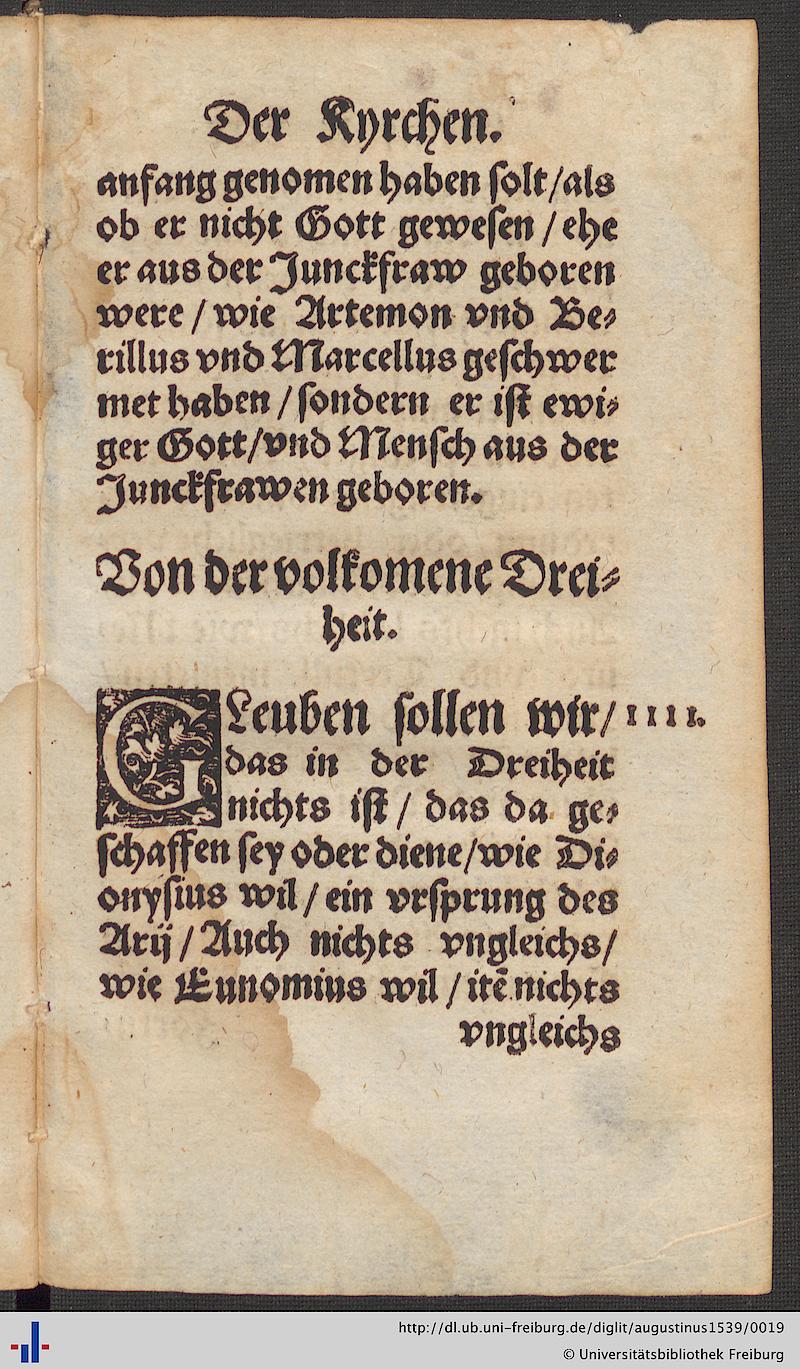 Der Kyrchen.
anfang genomen haben ſolt/als
ob er nicht Gott geweſen / ehe
er aus der Junckfraw geboren
were / wie Artemon vnd Be⸗
rillus vnd Marcellus geſchwer
met haben / ſondern er iſt ewi⸗
ger Gott/vnd Menſch aus der
Junckfrawen geboren.
Von der volkomene Drei⸗
heit.
GLeuben ſollen wir/ IIII.
das in der Dreiheit
nichts iſt / das da ge⸗
ſchaffen ſey oder diene/wie Di⸗
onyſius wil / ein vrſprung des
Arij / Auch nichts vngleichs/
wie Eunomius wil / itē nichts
vngleichs
http://dl.ub.uni-freiburg.de/diglit/augustinus1539/0019
© Universitätsbibliothek Freiburg